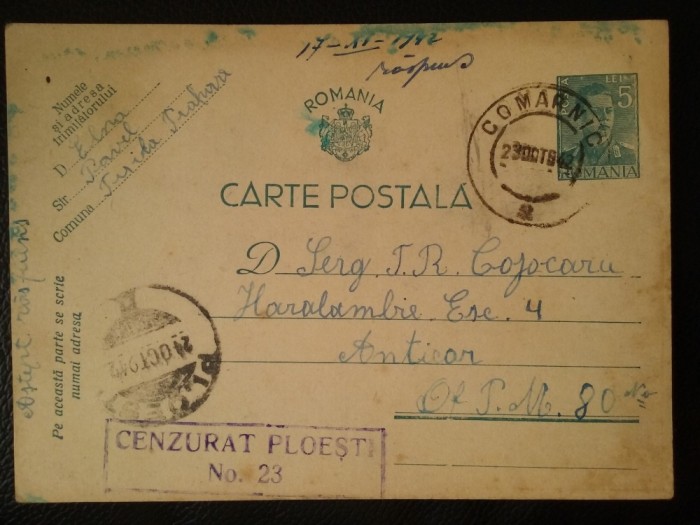 17-XI-1942
răspuns
Numele
și adresa
trimițătorului
D. Elna
Str Pavel
Comuna Prahova
ROMANIA
LEI
5
ROMANIA
COMARNIC
23 OCT 942
CARTE POSTALĂ
D Serg T.R. Cojocaru
Haralambie Esc. 4
Anticar
Of P.M. 80
Aștept răspuns
Pe această parte se scrie
numai adresa
24 OCT 942
CENZURAT PLOEȘTI
No. 23